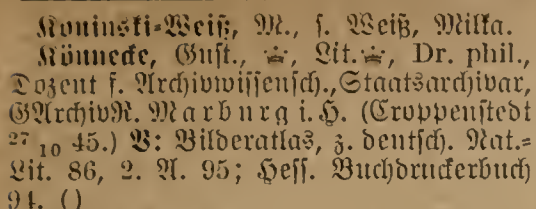 Koninski-Weiß, M., s. Weiß, Milka.
Könnecke, Gust., Lit. Dr. phil.,
Dozent f. Archivwissensch., Staatsarchivar,
GArchivR. Marburg i. H. (Croppenstedt
27 10 45.) V: Bilderatlas, z. deutsch. Nat.=
Lit. 86, 2. A. 95; Hess. Buchdruckerbuch
94. ()